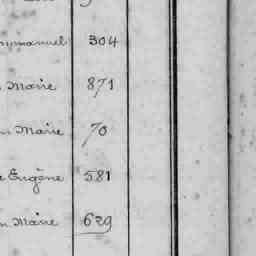 mmanuel 304
Marie 871
Marie 70
Eugène 581
Marie 629